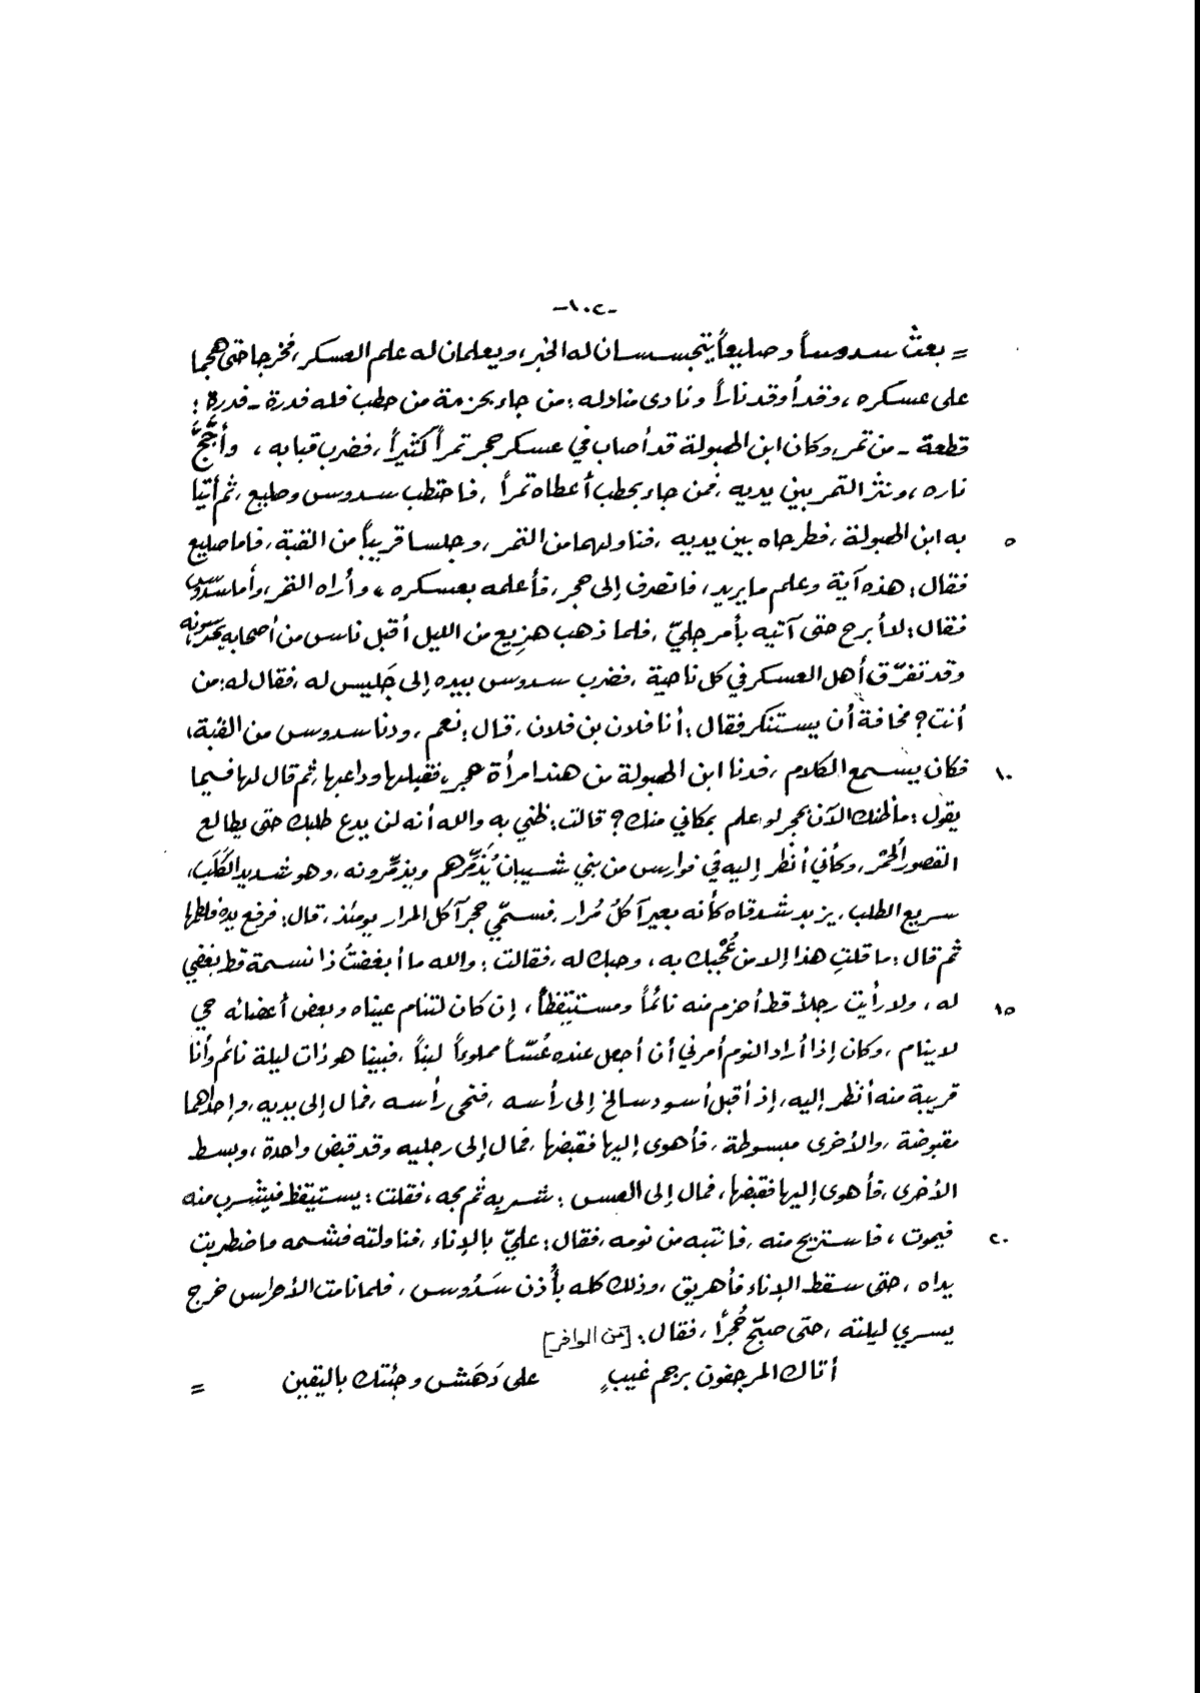 -١٠٢-
= بعث سدوساً وصليعاً يتجسسان له الخبر، ويعلمان له علم العسكر، فخرجا حتى هجما
على عسكره، وقد أوقد ناراً ونادى مناد له: من جاء بحزمة من حطب فله فدرة - فدرة:
قطعة - من تمر، وكان ابن الهبولة قد أصاب في عسكر حجر تمراً كثيراً، فضرب قبابه، وأجَّجَ
ناره، ونثر التمر بين يديه، فمن جاء بحطب أعطاه تمراً، فاحتطب سدوس وصليع، ثم أتيا
٥ به ابن الهبولة، فطرحاه بين يديه، فناولهما من التمر، وجلسا قريباً من القبة، فاما صليع
فقال: هذه آية وعلم ما يريد، فانصرف إلى حجر، فأعلمه بعسكره، وأراه التمر، وأما سدوس
فقال: لا أبرح حتى آتيه بأمر جليّ، فلما ذهب هزيع من الليل أقبل ناس من أصحابه يحرسونه،
وقد تفرّق أهل العسكر في كل ناحية، فضرب سدوس بيده إلى جَليس له، فقال له: من
أنت؟ مخافة أن يستنكر فقال: أنا فلان بن فلان، قال: نعم، ودنا سدوس من القبة،
١٠ فكان يسمع الكلام، فدنا ابن الهبولة من هند امرأة حجر، فقبلها وداعبها، ثم قال لها فيما
يقول: ما ظنك الآن بحجر لو علم بمكاني منك؟ قالت: ظني به والله أنه لن يدع طلبك حتى يطالع
القصور الحُمْر، وكأني أنظر إليه في فوارس من بني شيبان يُذَمِّرهم ويذمِّرونه، وهو شديد الكَلَب،
سريع الطلب، يزبد شدقاه كأنه بعير آكلُ مُرار، فسمّي حجر آكل المرار يومئذ، قال: فرفع يده فلطمها
ثم قال: ما قلتِ هذا إلا من عُجْبك به، وحبك له، فقالت: والله ما أبغضتُ ذا نسمة قط بغضي
١٥ له، ولا رأيت رجلاً قط أحزم منه نائماً ومستيقظاً، إن كان لتنام عيناه وبعض أعضائه حي
لا ينام، وكان إذا أراد النوم أمرني أن أجعل عنده عُسّاً مملوءاً لبناً، فبينا هو ذات ليلة نائم وأنا
قريبة منه أنظر إليه، إذ أقبل أسود سالخ إلى رأسه، فنحى رأسه، فمال إلى يديه، وإحداهما
مقبوضة، والأخرى مبسوطة، فأهوى إليها فقبضها، فمال إلى رجليه وقد قبض واحدة، وبسط
الأخرى، فأهوى إليها فقبضها، فمال إلى العس: شربه ثم مجه، فقلت: يستيقظ فيشرب منه
٢٠ فيموت، فاستريح منه، فانتبه من نومه، فقال: عليّ بالإناء، فناولته فشمه فاضطربت
يداه، حتى سقط الإناء فأهريق، وذلك كله بأُذن سَدُوس، فلما نامت الأحراس خرج
يسري ليلته، حتى صبّح حُجراً، فقال: [من الوافر]
أتاك المرجفون برجم غيبٍ على دَهَش وجئتك باليقين =